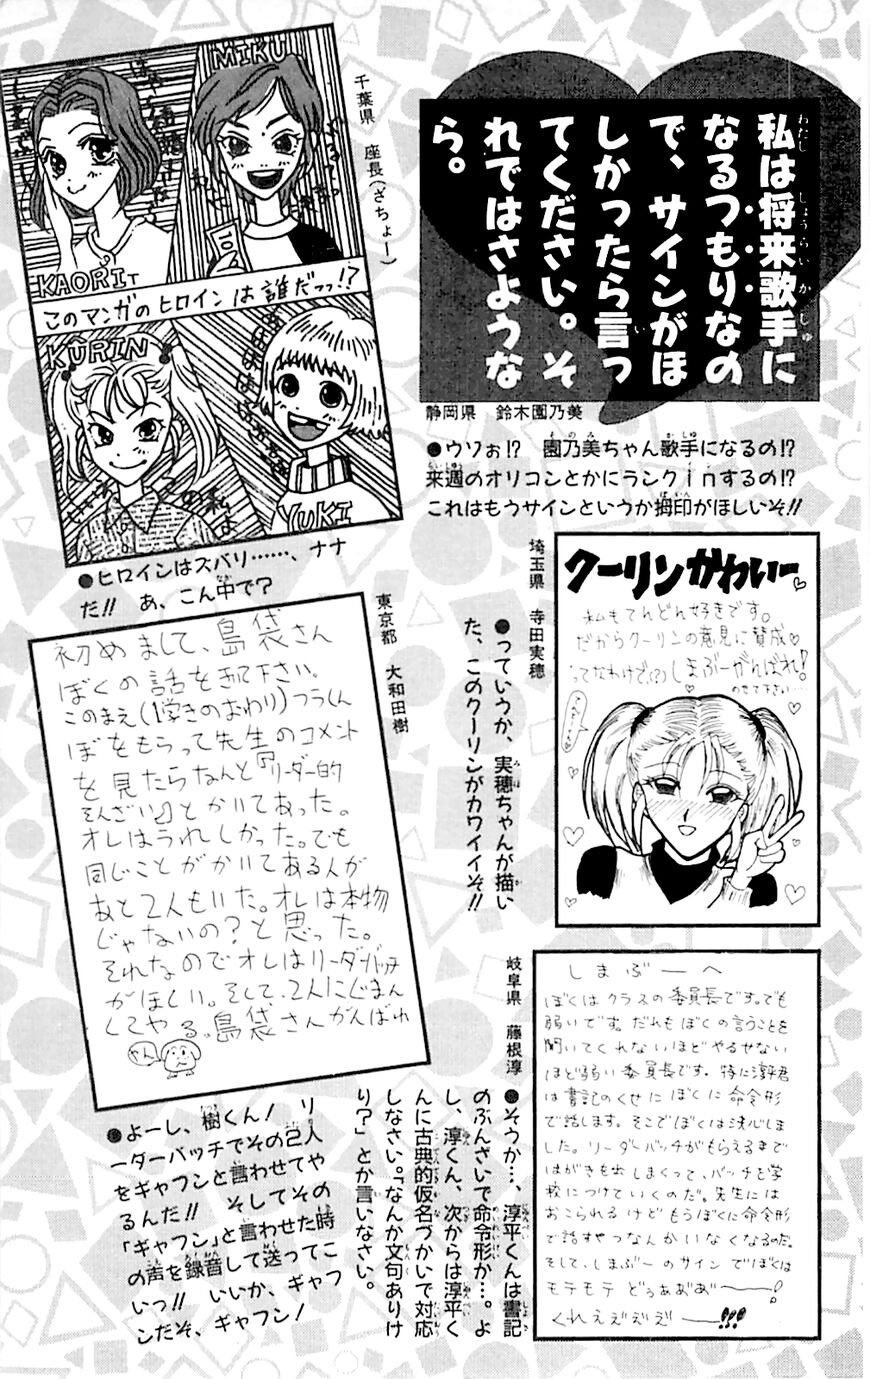 私は将来歌手に
なるつもりなの
で、サインがほ
しかったら言っ
てください。そ
れではさような
ら。
静岡県 鈴木園乃美
●ウソぉ!? 園乃美ちゃん歌手になるの!?
来週のオリコンとかにランクinするの!?
これはもうサインというか拇印がほしいぞ!!
千葉県 座長(ざちょー)
MIKU
KAORI
このマンガのヒロインは誰だっっ!?
KŪRIN
YUKI
●ヒロインはズバリ……、ナナ
だ!! あ、こん中で?
埼玉県 寺田実穂
クーリンかわいー
私もてれどれ好きです。
だからクーリンの意見に賛成♡
ってなわけで、(?)しまぶーがんばれ!
のせて下さい…
●っていうか、実穂ちゃんが描い
た、このクーリンがカワイイぞ!!
東京都 大和田樹
初めまして、島袋さん
ぼくの話をきいて下さい。
このまえ(1学きのおわり)つうしん
ぼをもらって先生のコメント
を見たらなんと『リーダー的
そんざい』とかいてあった。
オレはうれしかった。でも
同じことがかいてある人が
あと2人もいた。オレは本物
じゃないの?と思った。
それなのでオレはリーダーバッチ
がほしい。そして、2人にじまん
してやる。島袋さんがんばれ
●よーし、樹くん! リ
ーダーバッチでその2人
をギャフンと言わせてや
るんだ!! そしてその
「ギャフン」と言わせた時
の声を録音して送ってこ
いっ!! いいか、ギャフ
ンだぞ、ギャフン!
岐阜県 藤根淳
しまぶーへ
ぼくはクラスの委員長です。でも
弱いです。だれもぼくの言うことを
聞いてくれないほどやるせない
ほど弱い委員長です。特に淳平君
は書記のくせにぼくに命令形
で話します。そこでぼくは決心しま
した。リーダーバッチがもらえるまで
はがきを出しまくって、バッチを学
校につけていくのだ。先生には
おこられるけどもうぼくに命令形
で話すやつなんかいなくなるのだ。
そして、しまぶーのサインでぼくは
モテモテ どぅあぁあ〜!
くれぇぇぇぇ〜!!!
●そうか…、淳平くんは書記
のぶんざいで命令形か…。よ
し、淳くん、次からは淳平く
んに古典的仮名づかいで対応
しなさい。「なんか文句ありけ
り?」とか言いなさい。